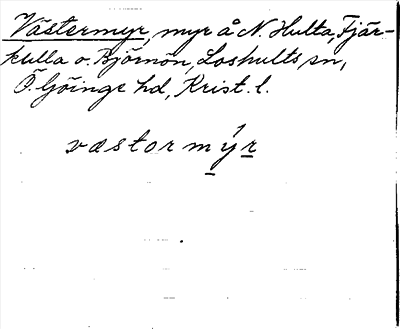 Västermyr, myr å N. Hulta, Fjär-
kulla o. Björnön, Loshults sn,
Ö. Göinge hd, Krist. l.
væstormýr